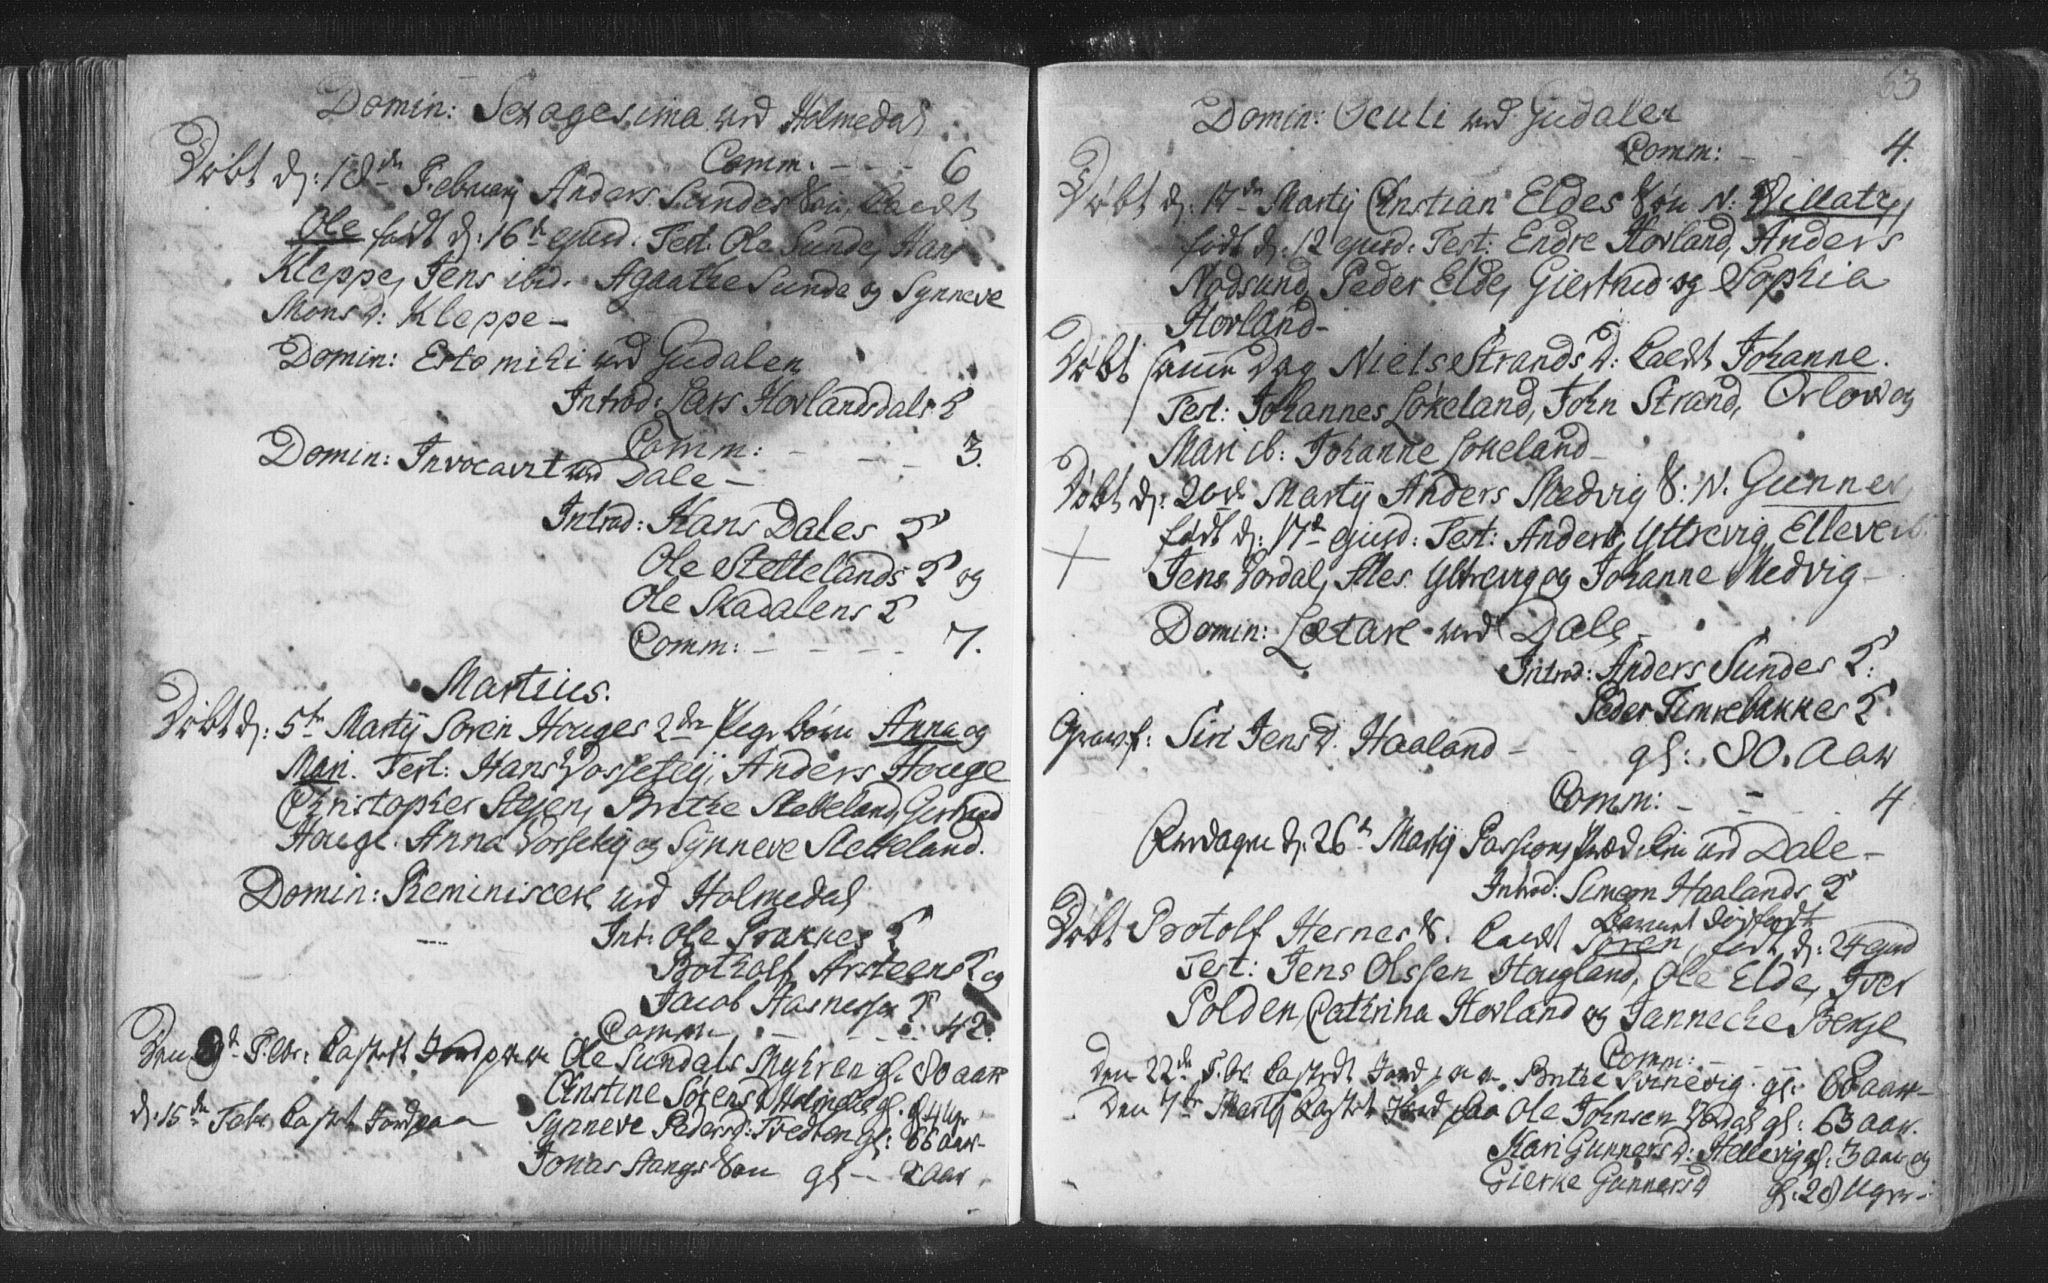 Domin: Sexagesima ved Holmedal
Comm. - - - 6
Døbt d: 18de Februarij Anders Sundes Søn, kaldt
Ole født d: 16de ejusd: Test: Ole Sunde, Hans
Kleppe, Jens ibid. Agaathe Sunde og Synneve
Monsd: Kleppe -
Domin: Esto mihi ved Gudalen
Introd: Lars Hovlandsdals K
Comm: - - - 3.
Domin: Invocavit ved Dale -
Introd: Hans Dales K
Ole Stettelands K og
Ole Skadalens K
Comm: - - - - 7.
Martius.
Døbt d: 5te Martij Søren Houges 2de børn Anna og
Mari. Test: Hans Vosseteij, Anders Houge
Christopher Steien, Brithe Stetteland, Giertrud
Houge. Anna Vosseteij og Synneve Stetteland.
Domin: Reminiscere ved Holmedal
Int: Ole Brakkes K
Botholf Arsteens K og
Jacob K
Comm - - 42.
Den 9de Febr: Castet Jord paa Ole Sundals Myhren gl. 80 aar
Christine Sørensd gl. 4 Ugr
d: 15de Febr Castet Jord paa Synneve Pedersd: Tvedten gl: 66 aar
Jonas Stangs Søn gl - 2 aar
63
Domin: Oculi ved Gudalen
Comm: - - - 4.
Døbt d: 17de Martij Christian Eldes Søn N: Villatz,
født d: 12 ejusd: Test: Endre Hovland, Anders
Nodsund, Peder Elde, Giertrud og Sophia
Hovland -
Døbt samme Dag Niels Strands D: kaldt Johanne.
Test: Johannes Løkeland, John Strand, og
Mari ib: Johanne Løkeland -
Døbt d: 20de Martij Anders Medvig S: N. Gunner,
født d: 17de ejusd: Test: Anders Yttrevig, Elleve ib
Jens Vordal, Ales Yttrevig og Johanne Medvig -
Domin: Lætare ved Dale -
Introd: Anders Sundes K:
Peder Timrebakkes K.
Gravf: Siri Jensd. Haaland - - gl: 80. aar
Comm: - - 4
d: 26de Martij Passions Prædiken ved Dale -
Introd: Simeon Haalands K
Barnet
Døbt Botolf Hernes S. kaldt Søren, født d: 24 ejusd
Test: Jens Olssen Hougland, Ole Elde, Iver
Polden, Cathrina Hovland og Jannecke Berge
Comm: - -
Den 22de Febr Castet Jord paa Brithe Svinevig. gl: 68 aar -
Den 7de Martij Castet Jord paa Ole Johnsen Vordal gl: 63 aar.
Kari Gunnersd: Hellevig gl: 3 aar og
Gierke Gunnersd gl: 20 Uger -